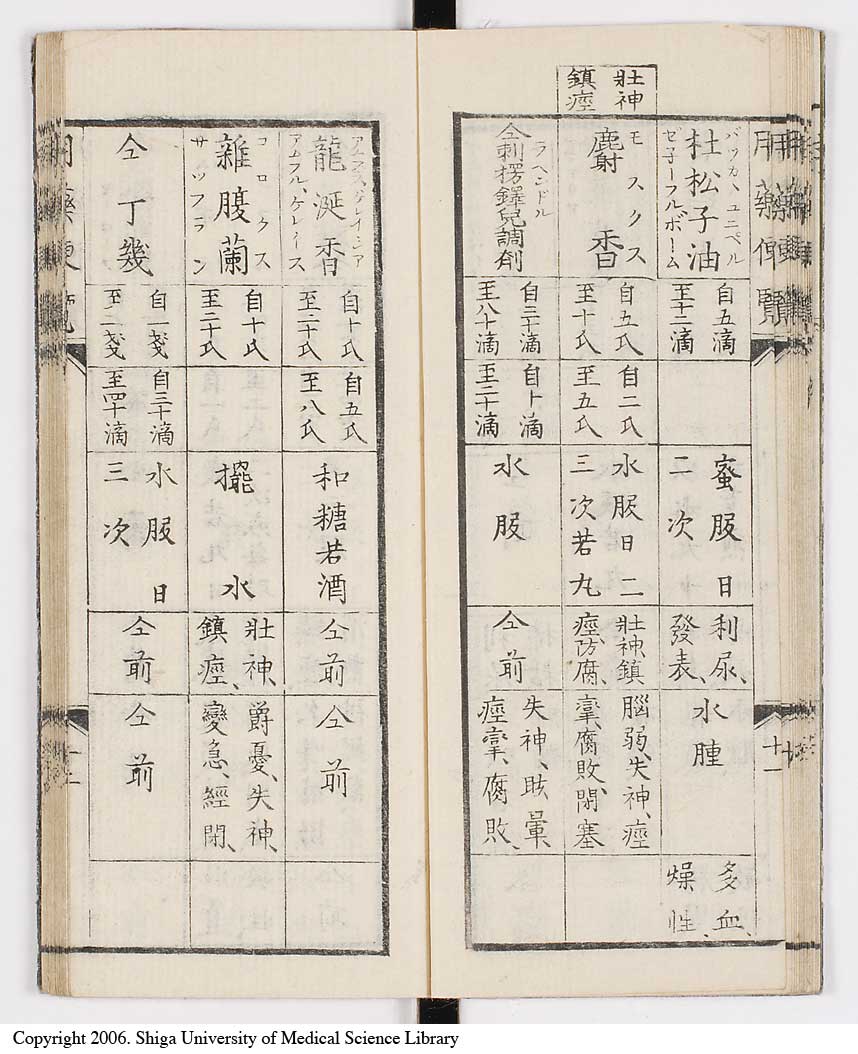 用藥便覽
十一
バッカヽユニペル
杜松子油
ゼ子ーフルボーム
自五滴
至十二滴
蜜服日
二次
利尿、
發表、
水腫
多血、
燥性、
壯神
鎮痙
モスクス
麝香
自五氏
至十氏
自二氏
至五氏
水服日二
三次若丸
壯神、鎮
痙、防腐、
腦弱、失神、痙
攣、腐敗、閉塞
ラヘンドル
仝刺楞鐸兒調劑
自三十滴
至八十滴
自十滴
至二十滴
水服
仝前
失神、眩暈、
痙攣、腐敗、
龍涎香
アムフル、ゲレイース
自十氏
至二十氏
自五氏
至八氏
和糖若酒
仝前
仝前
コロクス
雜腹蘭
サッフラン
自十氏
至二十氏
擺水
壯神、
鎮痙、
爵憂、失神、
變急、經閉、
仝丁幾
自一戔
至二戔
自三十滴
至四十滴
水服日
三次
仝前
仝前
Copyright 2006. Shiga University of Medical Science Library